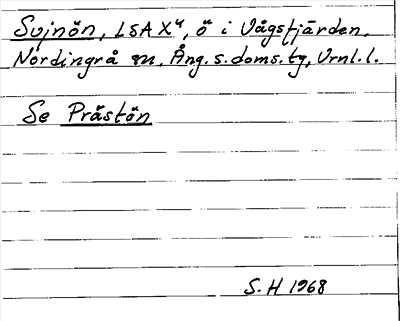 Svjnön, LSA X⁴, ö i Vågsfjärden,
Nordingrå sn, Ång. s. doms. tg, Vrnl. l.
Se Prästön
S. H 1968